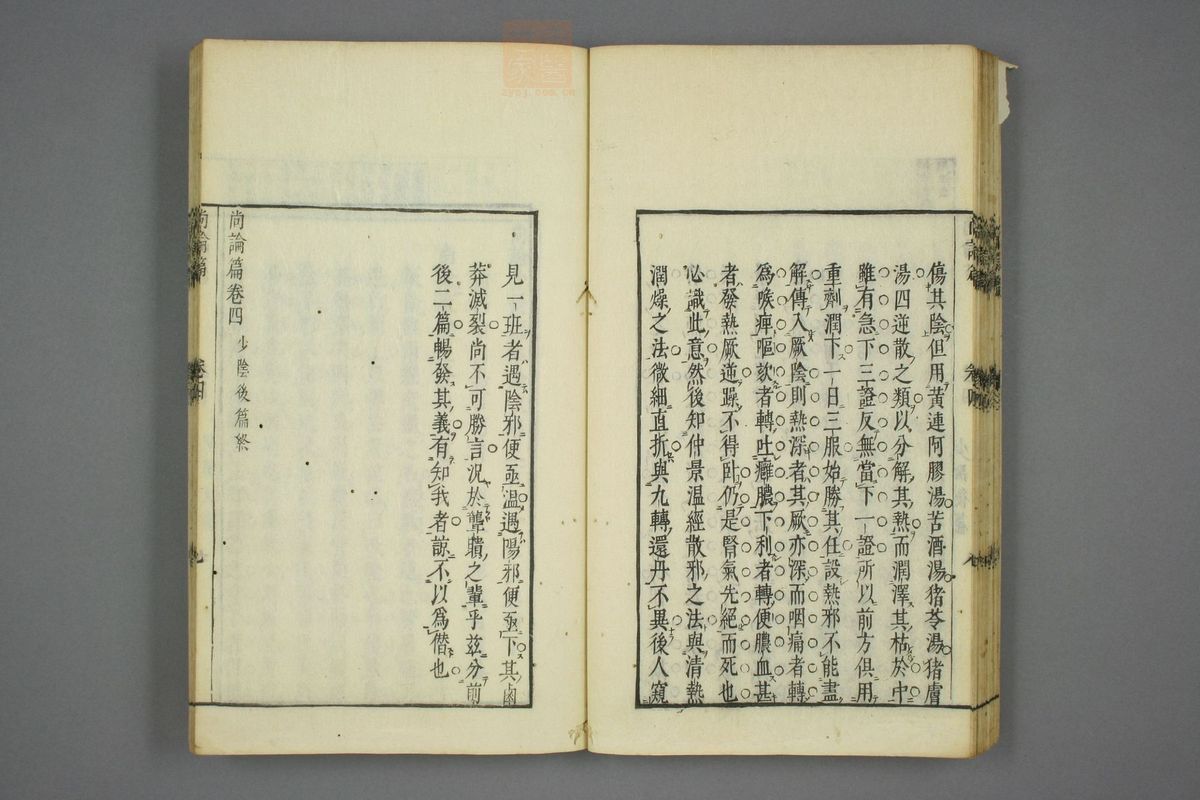 傷其陰但用黃連阿膠湯苦酒湯猪苓湯猪膚
湯四逆散之類以分解其熱而潤澤其枯於中
雖有急下三證反無當下一證所以前方俱用
重劑潤下一日三服始勝其任設熱邪不能盡
解傳入厥陰則熱深者其厥亦深而咽痛者轉
爲喉痺嘔欬者轉吐癰膿下利者轉便膿血甚
者發熱厥逆躁不得臥仍是腎氣先絕而死也
必識此意然後知仲景温經散邪之法與清熱
潤燥之法微細直折與九轉還丹不異後人窺
見一班者遇陰邪便亟温遇陽邪便亟下其鹵
莽滅裂尚不可勝言況於聾瞶之輩乎兹分前
後二篇暢發其義有知我者諒不以爲僭也
尚論篇卷四 少陰後篇終
尚論篇 卷四 九
zyej.com.cn